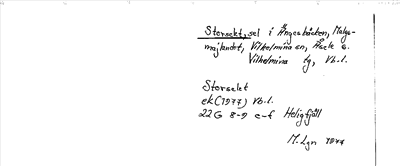 Storselet, sel i Ängesbäcken, Malgo-
majlandet, Vilhelmina sn, Åsele o.
Vilhelmina tg, Vb.l.
Storselet
ek (1977) Vb.l.
22 G 8-9 e-f Heligfjäll
M. Lgn 1977